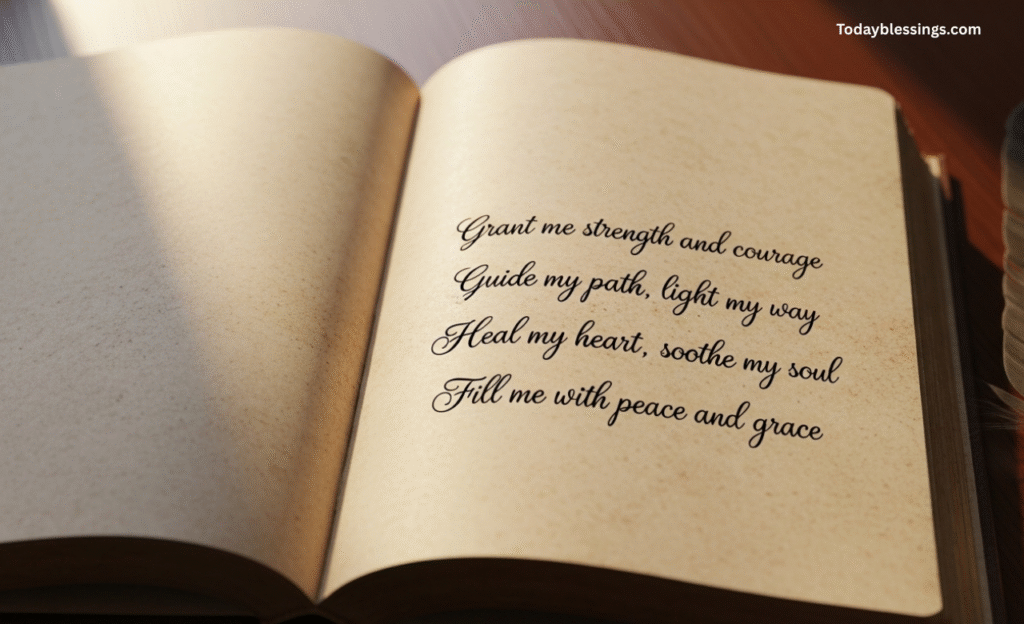 Todayblessings.com
Grant me strength and courage
Guide my path, light my way
Heal my heart, soothe my soul
Fill me with peace and grace